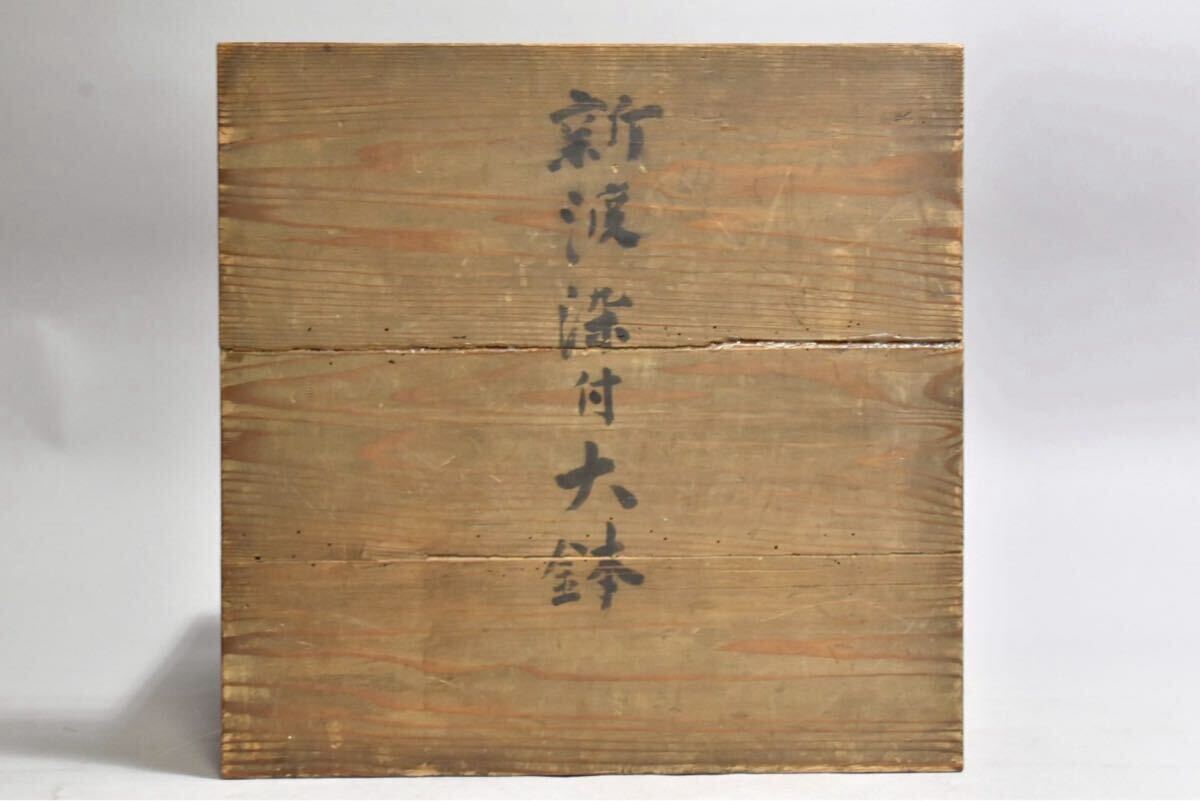 新渡染付大鉢